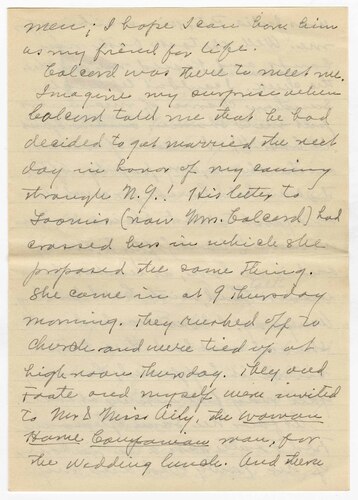 men; I hope I can own him
as my friend for life.
Colcord was there to meet me.
Imagine my surprise when
Colcord told me that he had
decided to get married the next
day in honor of my coming
through N.Y.! His letter to
Loomis (now Mrs. Colcord) had
crossed hers in which she
proposed the same thing.
She came in at 9 Thursday
morning. They rushed off to
Church and were tied up at
high noon Thursday. They and
Foote and myself were invited
to Mr & Miss Aily, the Woman
Home Companion man, for
the wedding lunch. And there